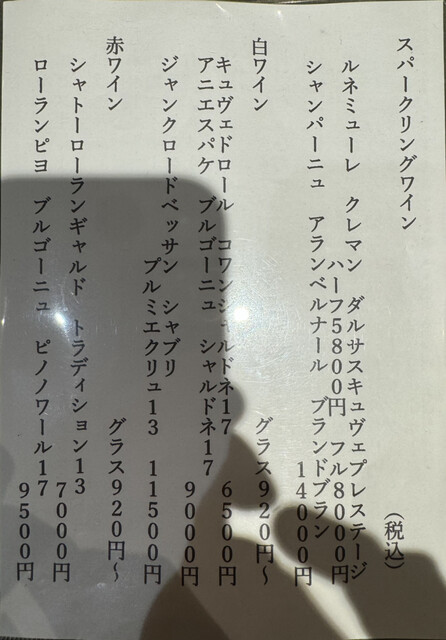 スパークリングワイン （税込）
ルネミューレ クレマン ダルサスキュヴェプレステージ
ハーフ5800円 フル8000円
シャンパーニュ アランベルナール ブランドブラン
14000円
白ワイン グラス920円～
キュヴェドロール コワンシャルドネ17 6500円
アニエスパケ ブルゴーニュ シャルドネ17
9000円
ジャンクロードベッサン シャブリ
プルミエクリュ13 11500円
赤ワイン グラス920円～
シャトーローランギャルド トラディション13
7000円
ローランピヨ ブルゴーニュ ピノノワール17
9500円